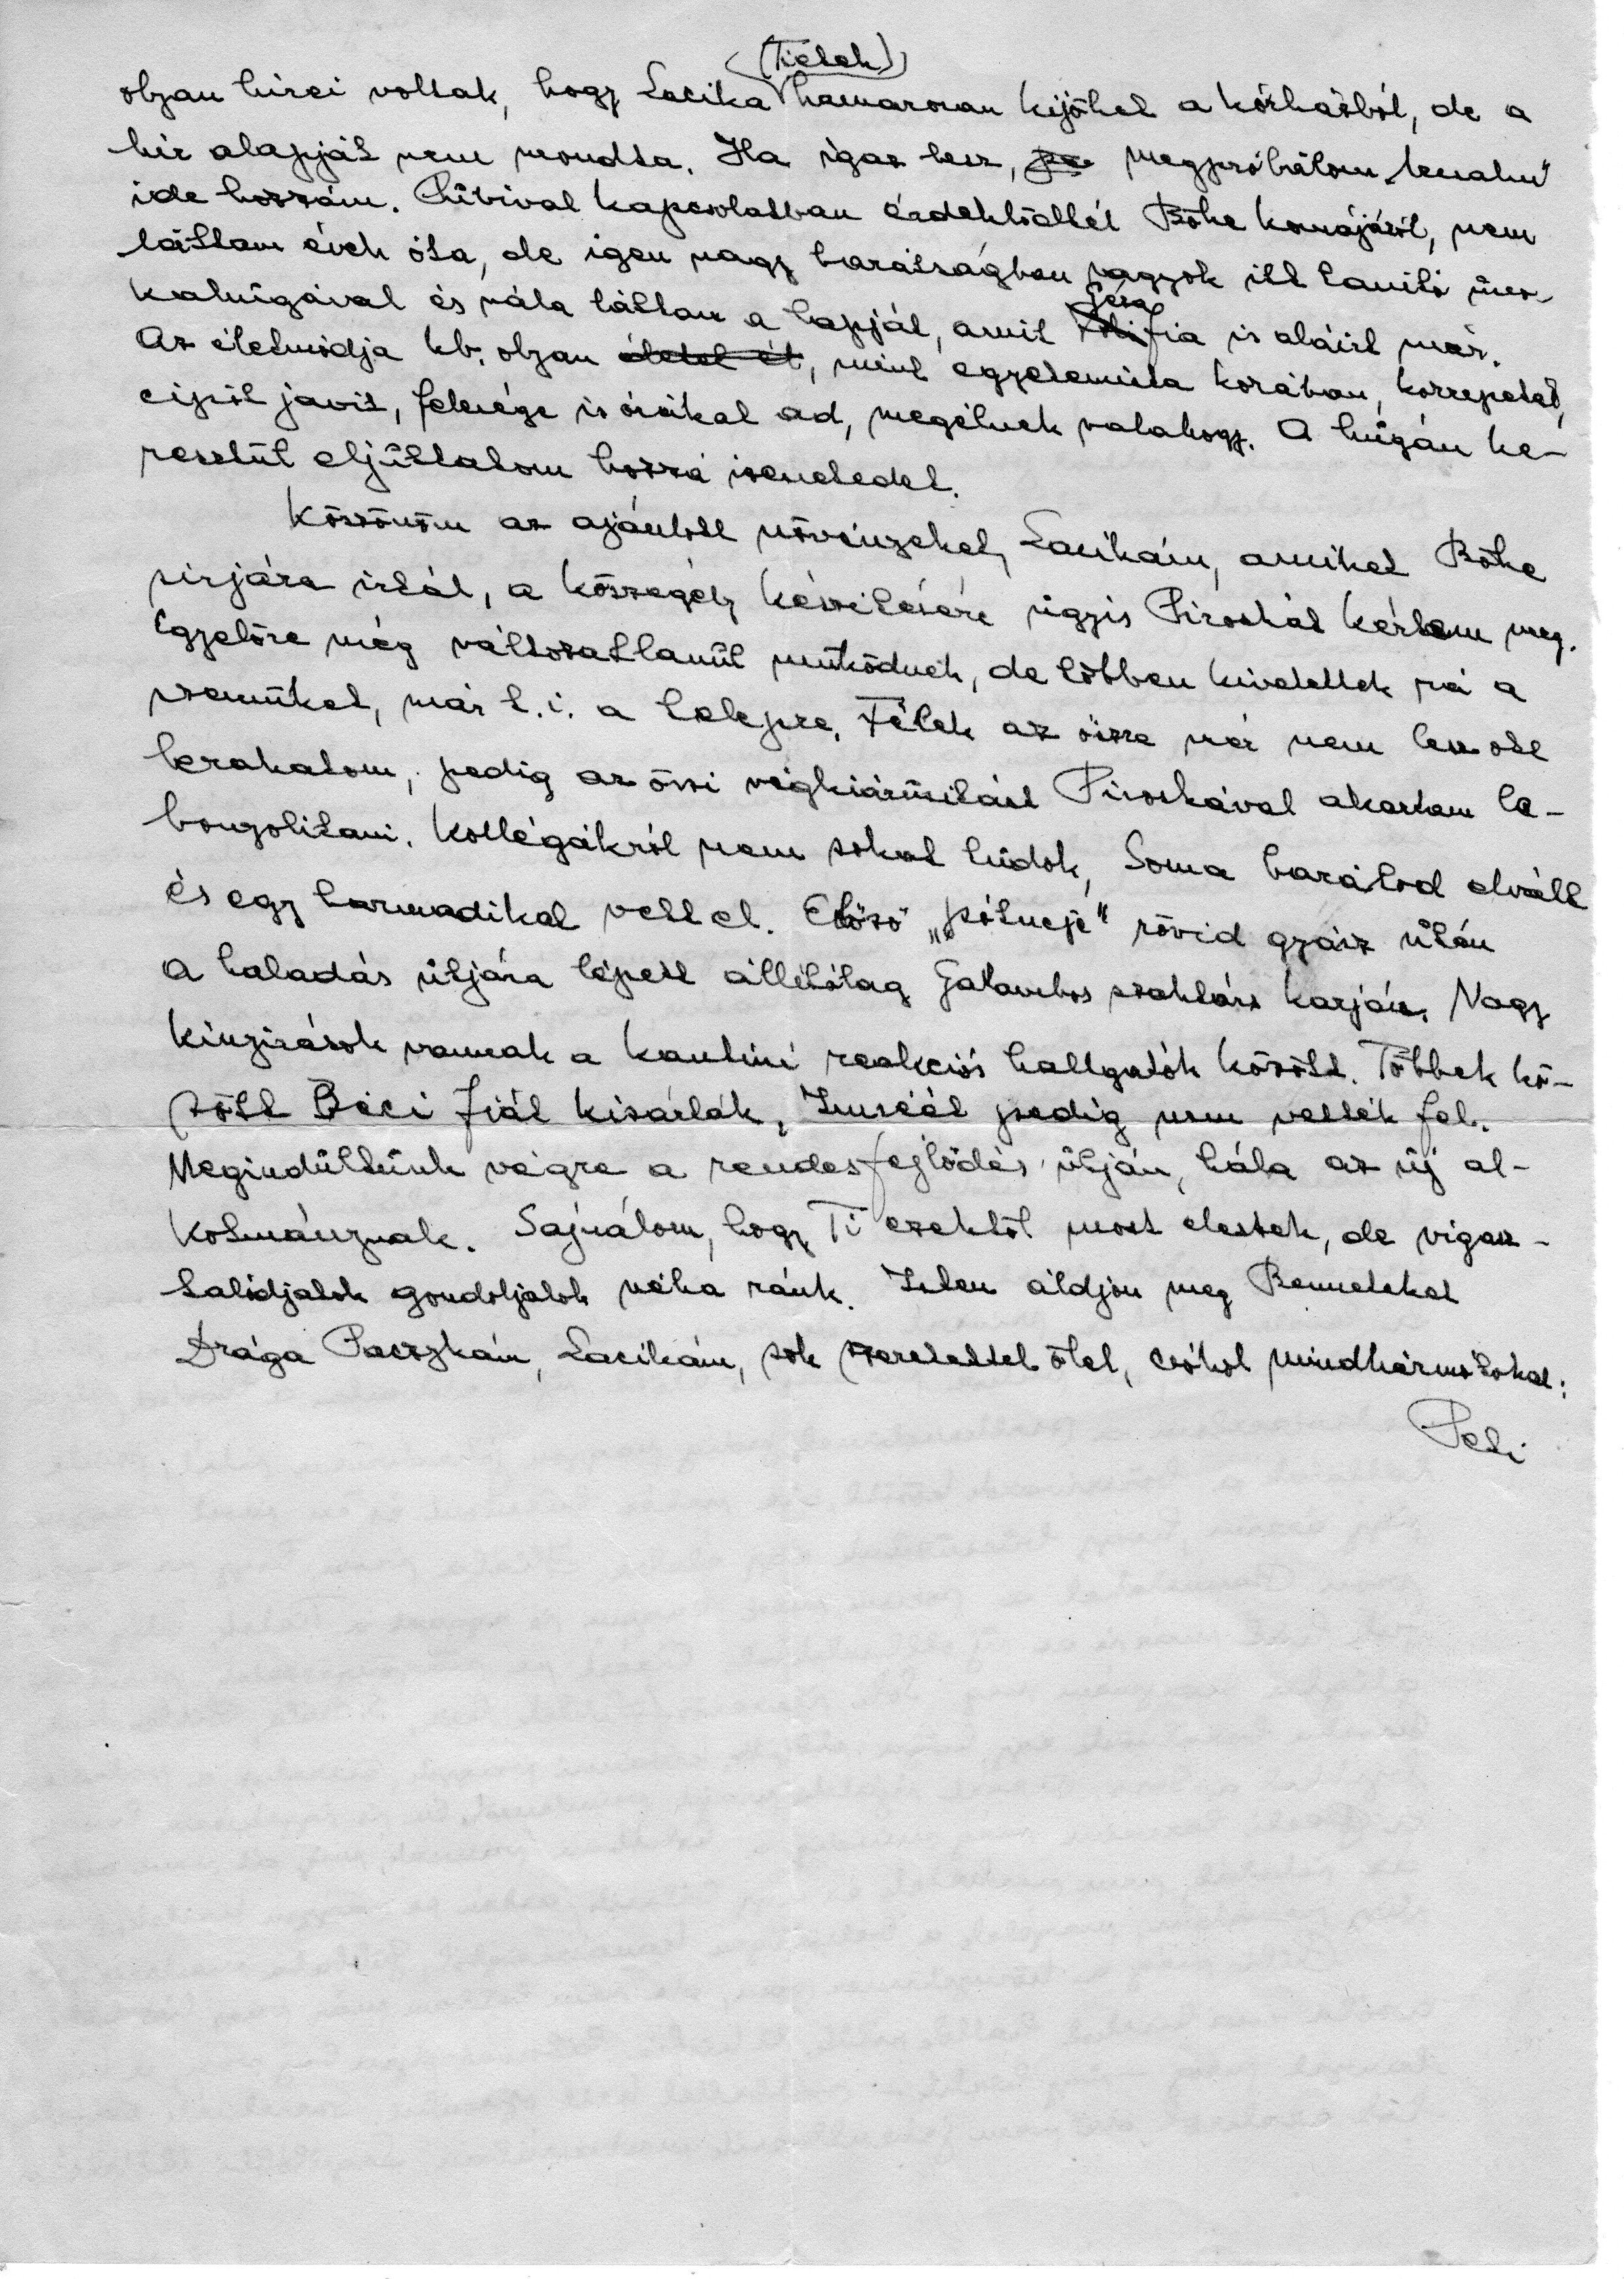 (Tietek)
olyan hirei voltak, hogy Lacika hamarosan kijöhet a kórházból, de a
hir alapját nem mondta. Ha igaz lesz, megpróbálom
ide hozzám. kapcsolatban érdeklődtél Böke komájáról, nem
láttam évek óta, de igen nagy barátságban vagyok itt tanító uno-
kahúgával és nála láttam a lapját, amit Géza fia is aláirt már.
Az életmódja kb. olyan életet él, mint egyetemista korában, korrepetál,
cipőt javit, felesége is órákat ad, megélnek valahogy. A húgán ke-
resztül eljuttatom hozzá üzenetedet.
Köszönöm az ajánlott növényeket, Lacikám, amiket Böke
sirjára irtál, a kőszegély készitésére úgyis Piroskát kértem meg.
Egyelőre még változatlanúl működnek, de többen kivetették rá a
szemüket, már t.i. a telepre. Félek az őszre már nem lesz ott
lerakatom, pedig az őszi végkiárúsitást Piroskával akartam le-
bonyolitani. Kollégákról nem sokat tudok, Soma barátod elvált
és egy harmadikat vett el. Előző „pótneje" rövid gyász után
a haladás útjára lépett állitólag Galambos szaktárs karján. Nagy
kinzirások vannak a hallgatók között. Többek kö-
zött Béci fiát kizárták, Imréét pedig nem vették fel.
Megindúltúnk végre a rendes fejlődés útján, hála az új al-
kotmánynak. Sajnálom, hogy Ti ezektől most elestek, de vigasz-
talódjatok gondoljatok néha ránk. Isten áldjon meg Benneteket
Drága Pacszkám, Lacikám, sok szeretettel ölel, csókol mindhármótokat:
Peti